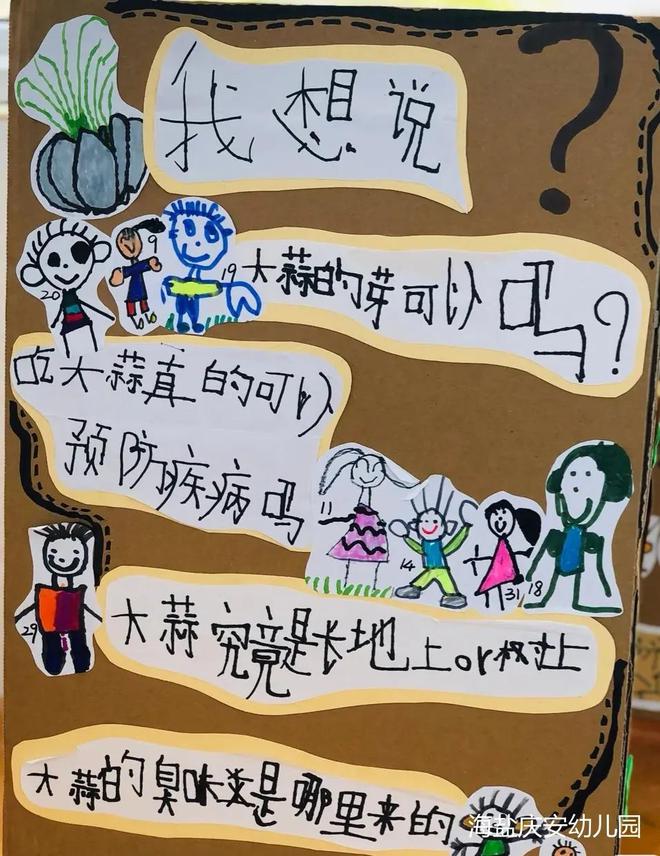 我想说
?
20
9
19
大蒜的芽可以吗?
吃大蒜真的可以
预防疾病吗
11
14
31
18
29
大蒜究竟是长地上or树上
大蒜的臭味是哪里来的
海盐庆安幼儿园